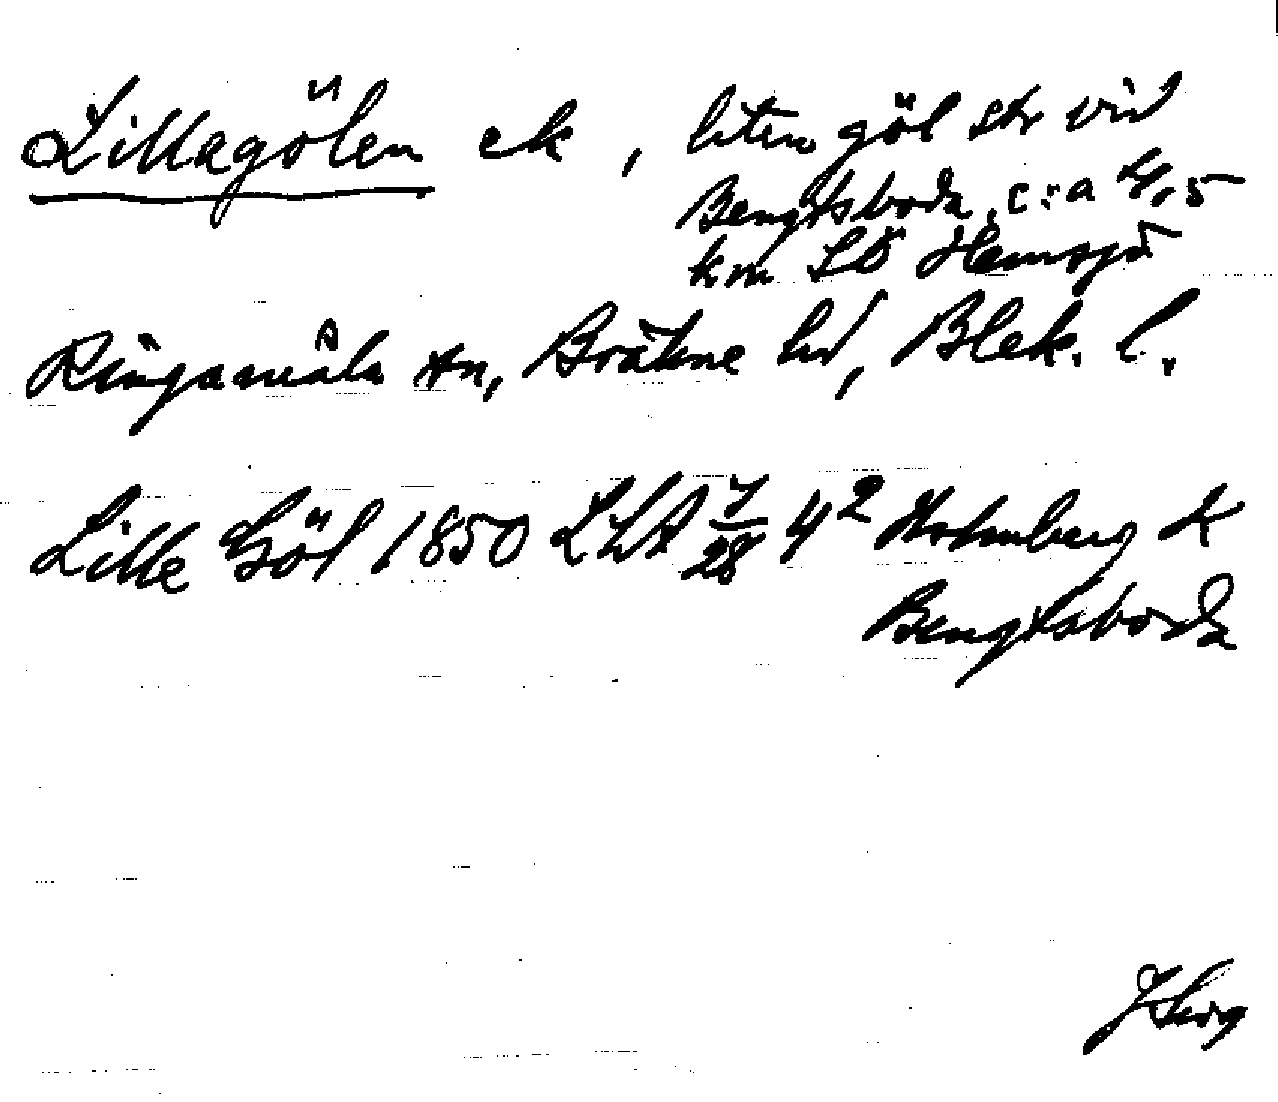 Lillagölen ek, liten göl str vid
Bengtsboda, c:a 4,5
km SÖ Hemsjö
Ringamåla sn, Bräkne hd, Blek. l.
Lille Göl 1850 LSA 7/28 4² Holmberg K
Bengtsboda